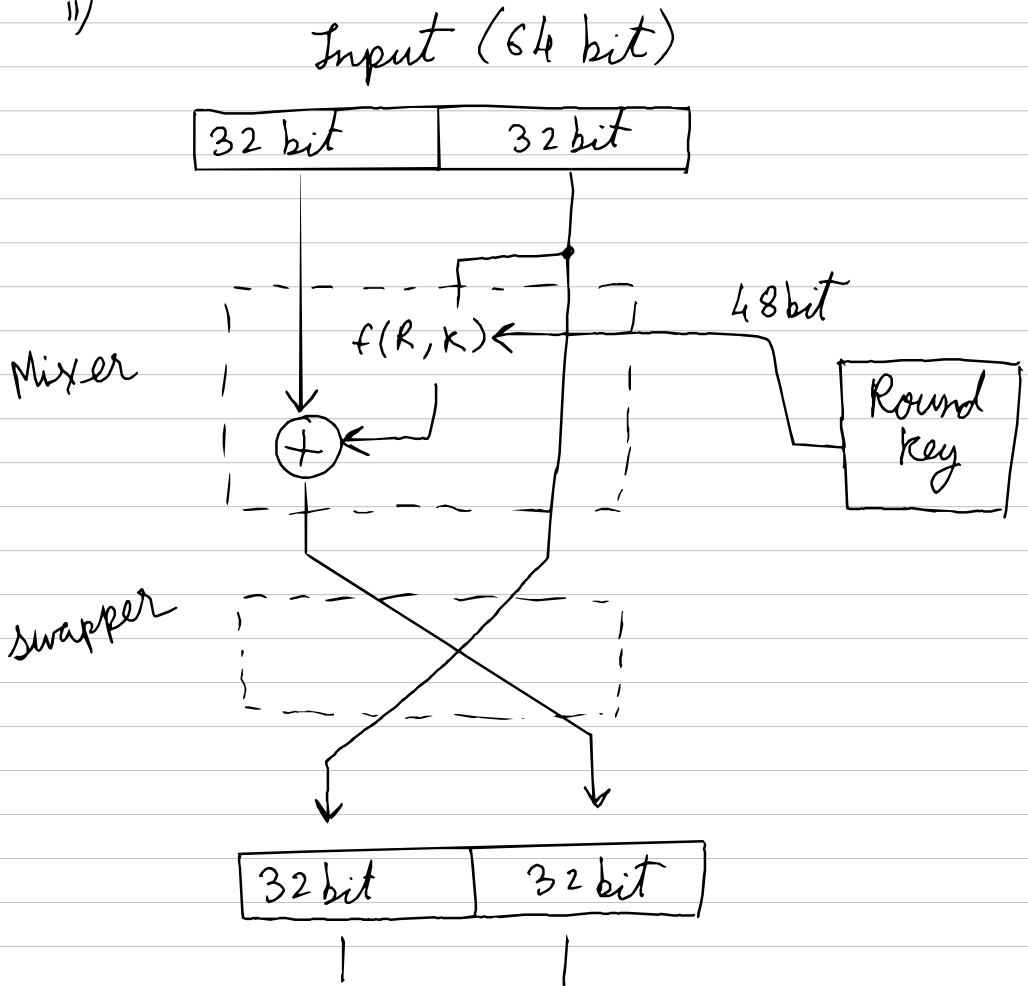 ii)
Input (64 bit)
32 bit
32 bit
48 bit
f(R, K)
Mixer
Round
key
+
swapper
32 bit
32 bit